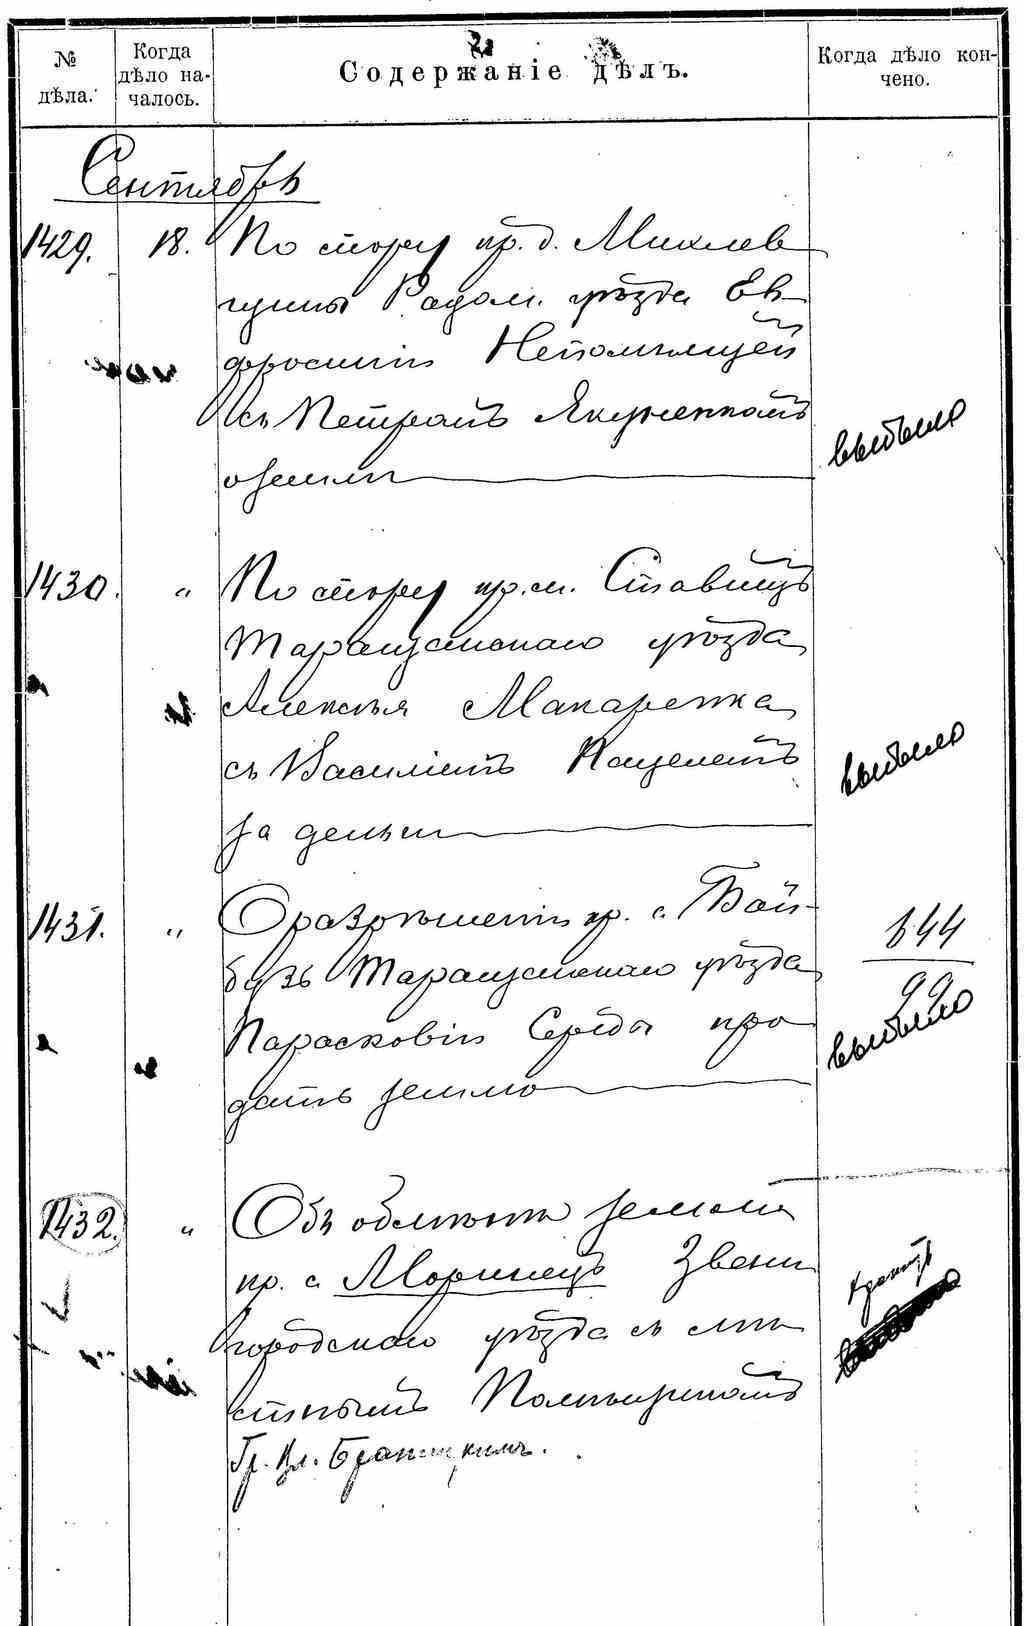 № дѣла.
Когда дѣло началось.
Содержаніе дѣлъ.
Когда дѣло кончено.
Сентябрь
1429. 18. По спору кр. д. Михлев
гущы Радом. уѣзда Ев-
фросиніи Непомнящей
съ Петромъ Якуненкомъ
о земли
выбыло
1430. " По спору кр. м. Ставищъ
Таращанскаго уѣзда
Алексѣя Макаренка
съ Василіемъ Кацелемъ
за деньги
выбыло
1431. " О разрѣшеніи кр. с. Бай-
бузъ Таращанскаго уѣзда
Парасковіи Середы про
дать землю
644
99
выбыло
1432. " Объ обмѣнѣ земли
кр. с. Моринецъ Звени
городскаго уѣзда съ мѣ
стнымъ Помѣщикомъ
Гр. Вл. Браницкимъ.
хранить